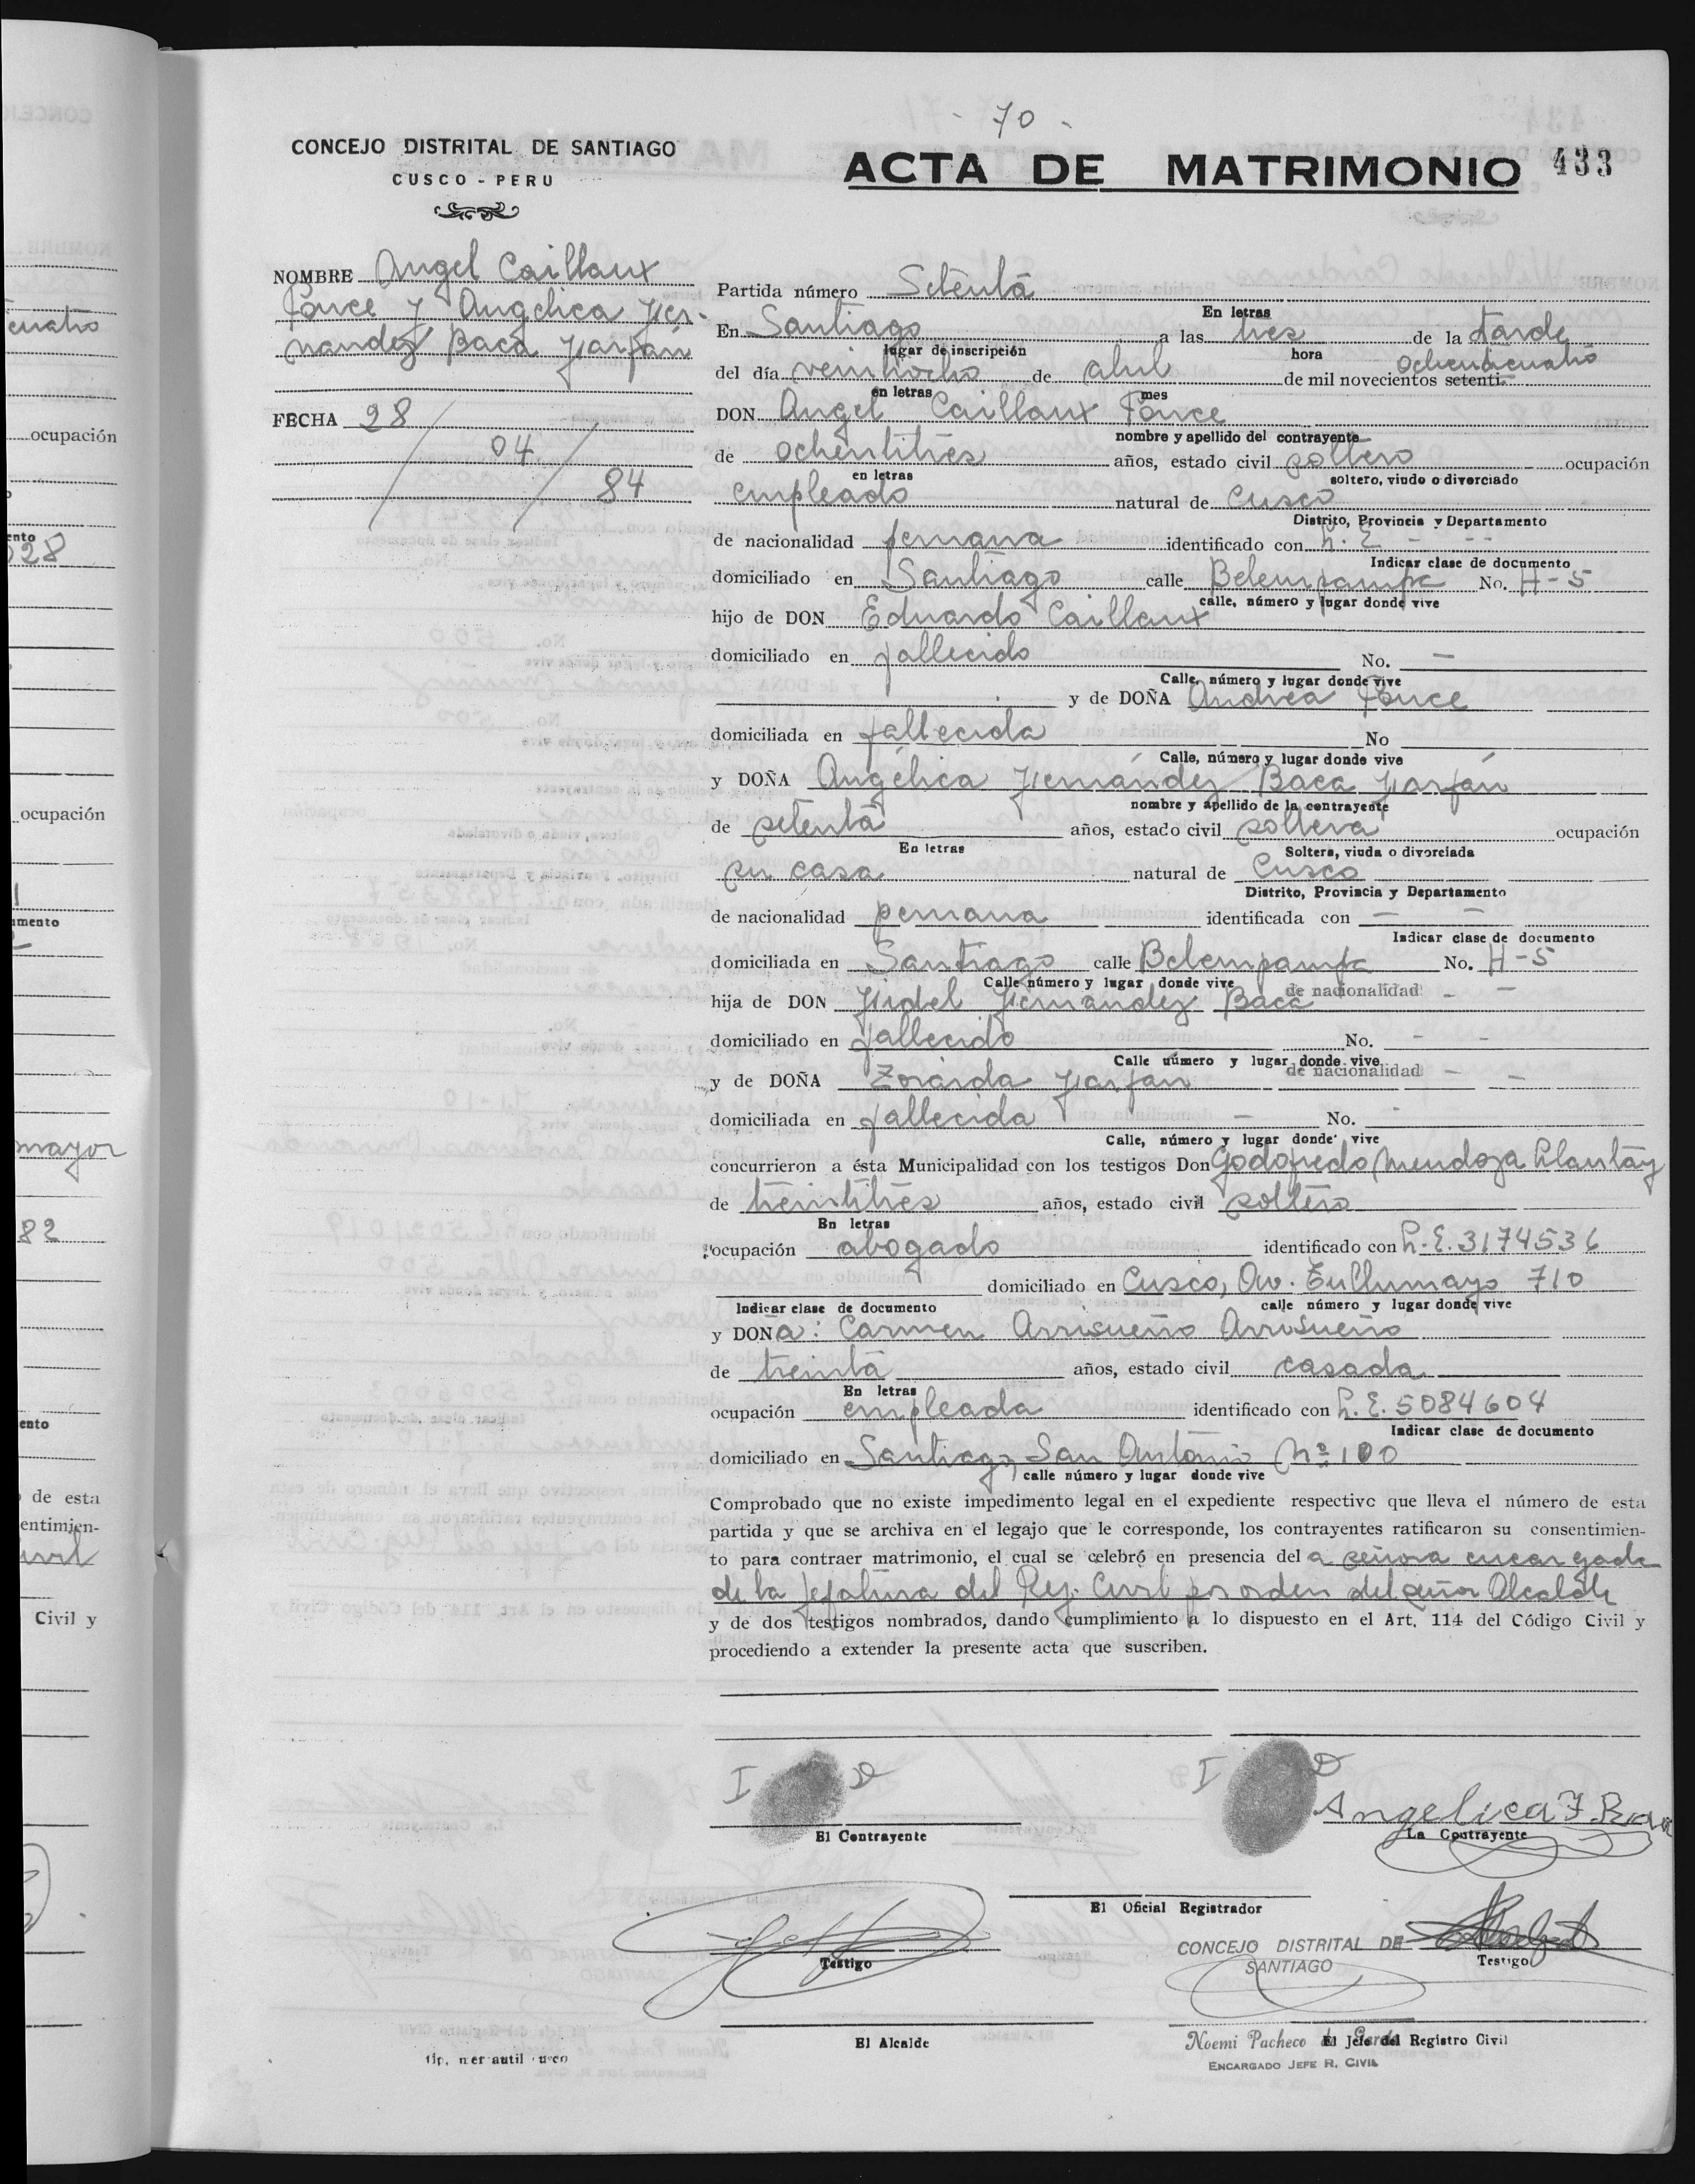 - 70 -
CONCEJO DISTRITAL DE SANTIAGO
CUSCO - PERU
ACTA DE MATRIMONIO 433
NOMBRE Angel Caillaux
Ponce y Angelica Fer-
nandez Baca Farfán
FECHA 28
04
84
Partida número Setenta
En letras
En Santiago a las tres de la tarde
lugar de inscripción hora
ochenticuatro
del día veintiocho de abril de mil novecientos setenti
en letras mes
DON Angel Caillaux Ponce
nombre y apellido del contrayente
de ochentitres años, estado civil soltero ocupación
en letras soltero, viudo o divorciado
empleado natural de Cusco
Distrito, Provincia y Departamento
de nacionalidad peruana identificado con L. E - --
Indicar clase de documento
domiciliado en Santiago calle Belempampa No. H-5
calle, número y lugar donde vive
hijo de DON Eduardo Caillaux
domiciliado en fallecido No. -
Calle, número y lugar donde vive
y de DOÑA Andrea Ponce
domiciliada en fallecida No
Calle, número y lugar donde vive
y DOÑA Angélica Fernández Baca Farfán
nombre y apellido de la contrayente
de setenta años, estado civil soltera ocupación
En letras Soltera, viuda o divorciada
su casa natural de Cusco
Distrito, Provincia y Departamento
de nacionalidad peruana identificada con - -
Indicar clase de documento
domiciliada en Santiago calle Belempampa No. H-5
Calle número y lugar donde vive de nacionalidad - -
hija de DON Fidel Fernandez Baca
domiciliado en fallecido No. - -
Calle número y lugar donde vive de nacionalidad - -
y de DOÑA Zoraida Farfan
domiciliada en fallecida - No. -
Calle, número y lugar donde vive
concurrieron a ésta Municipalidad con los testigos Don Godofredo Mendoza Llantay
de treintitres años, estado civil soltero
En letras
ocupación abogado identificado con L.E. 3174536
domiciliado en Cusco, Av. Tullumayo 710
Indicar clase de documento calle número y lugar donde vive
y DOÑa: Carmen Arrisueño Arrisueño
de treinta años, estado civil casada
En letras
ocupación empleada identificado con L.E. 5084604
Indicar clase de documento
domiciliado en Santiago, San Antonio Nº 100
calle número y lugar donde vive
Comprobado que no existe impedimento legal en el expediente respectivo que lleva el número de esta
partida y que se archiva en el legajo que le corresponde, los contrayentes ratificaron su consentimien-
to para contraer matrimonio, el cual se celebró en presencia del a señora encargada
de la Jefatura del Reg. Civil por orden del señor Alcalde
y de dos testigos nombrados, dando cumplimiento a lo dispuesto en el Art. 114 del Código Civil y
procediendo a extender la presente acta que suscriben.
I D I D
Angelica F. Baca
El Contrayente La Contrayente
El Oficial Registrador
CONCEJO DISTRITAL DE
SANTIAGO
Testigo Testigo
El Alcalde Noemi Pacheco de El Jefe del Registro Civil
ENCARGADO JEFE R. CIVIL
cuatro
ocupación
028
ocupación
mayor
82
de esta
entimien-
Civil y